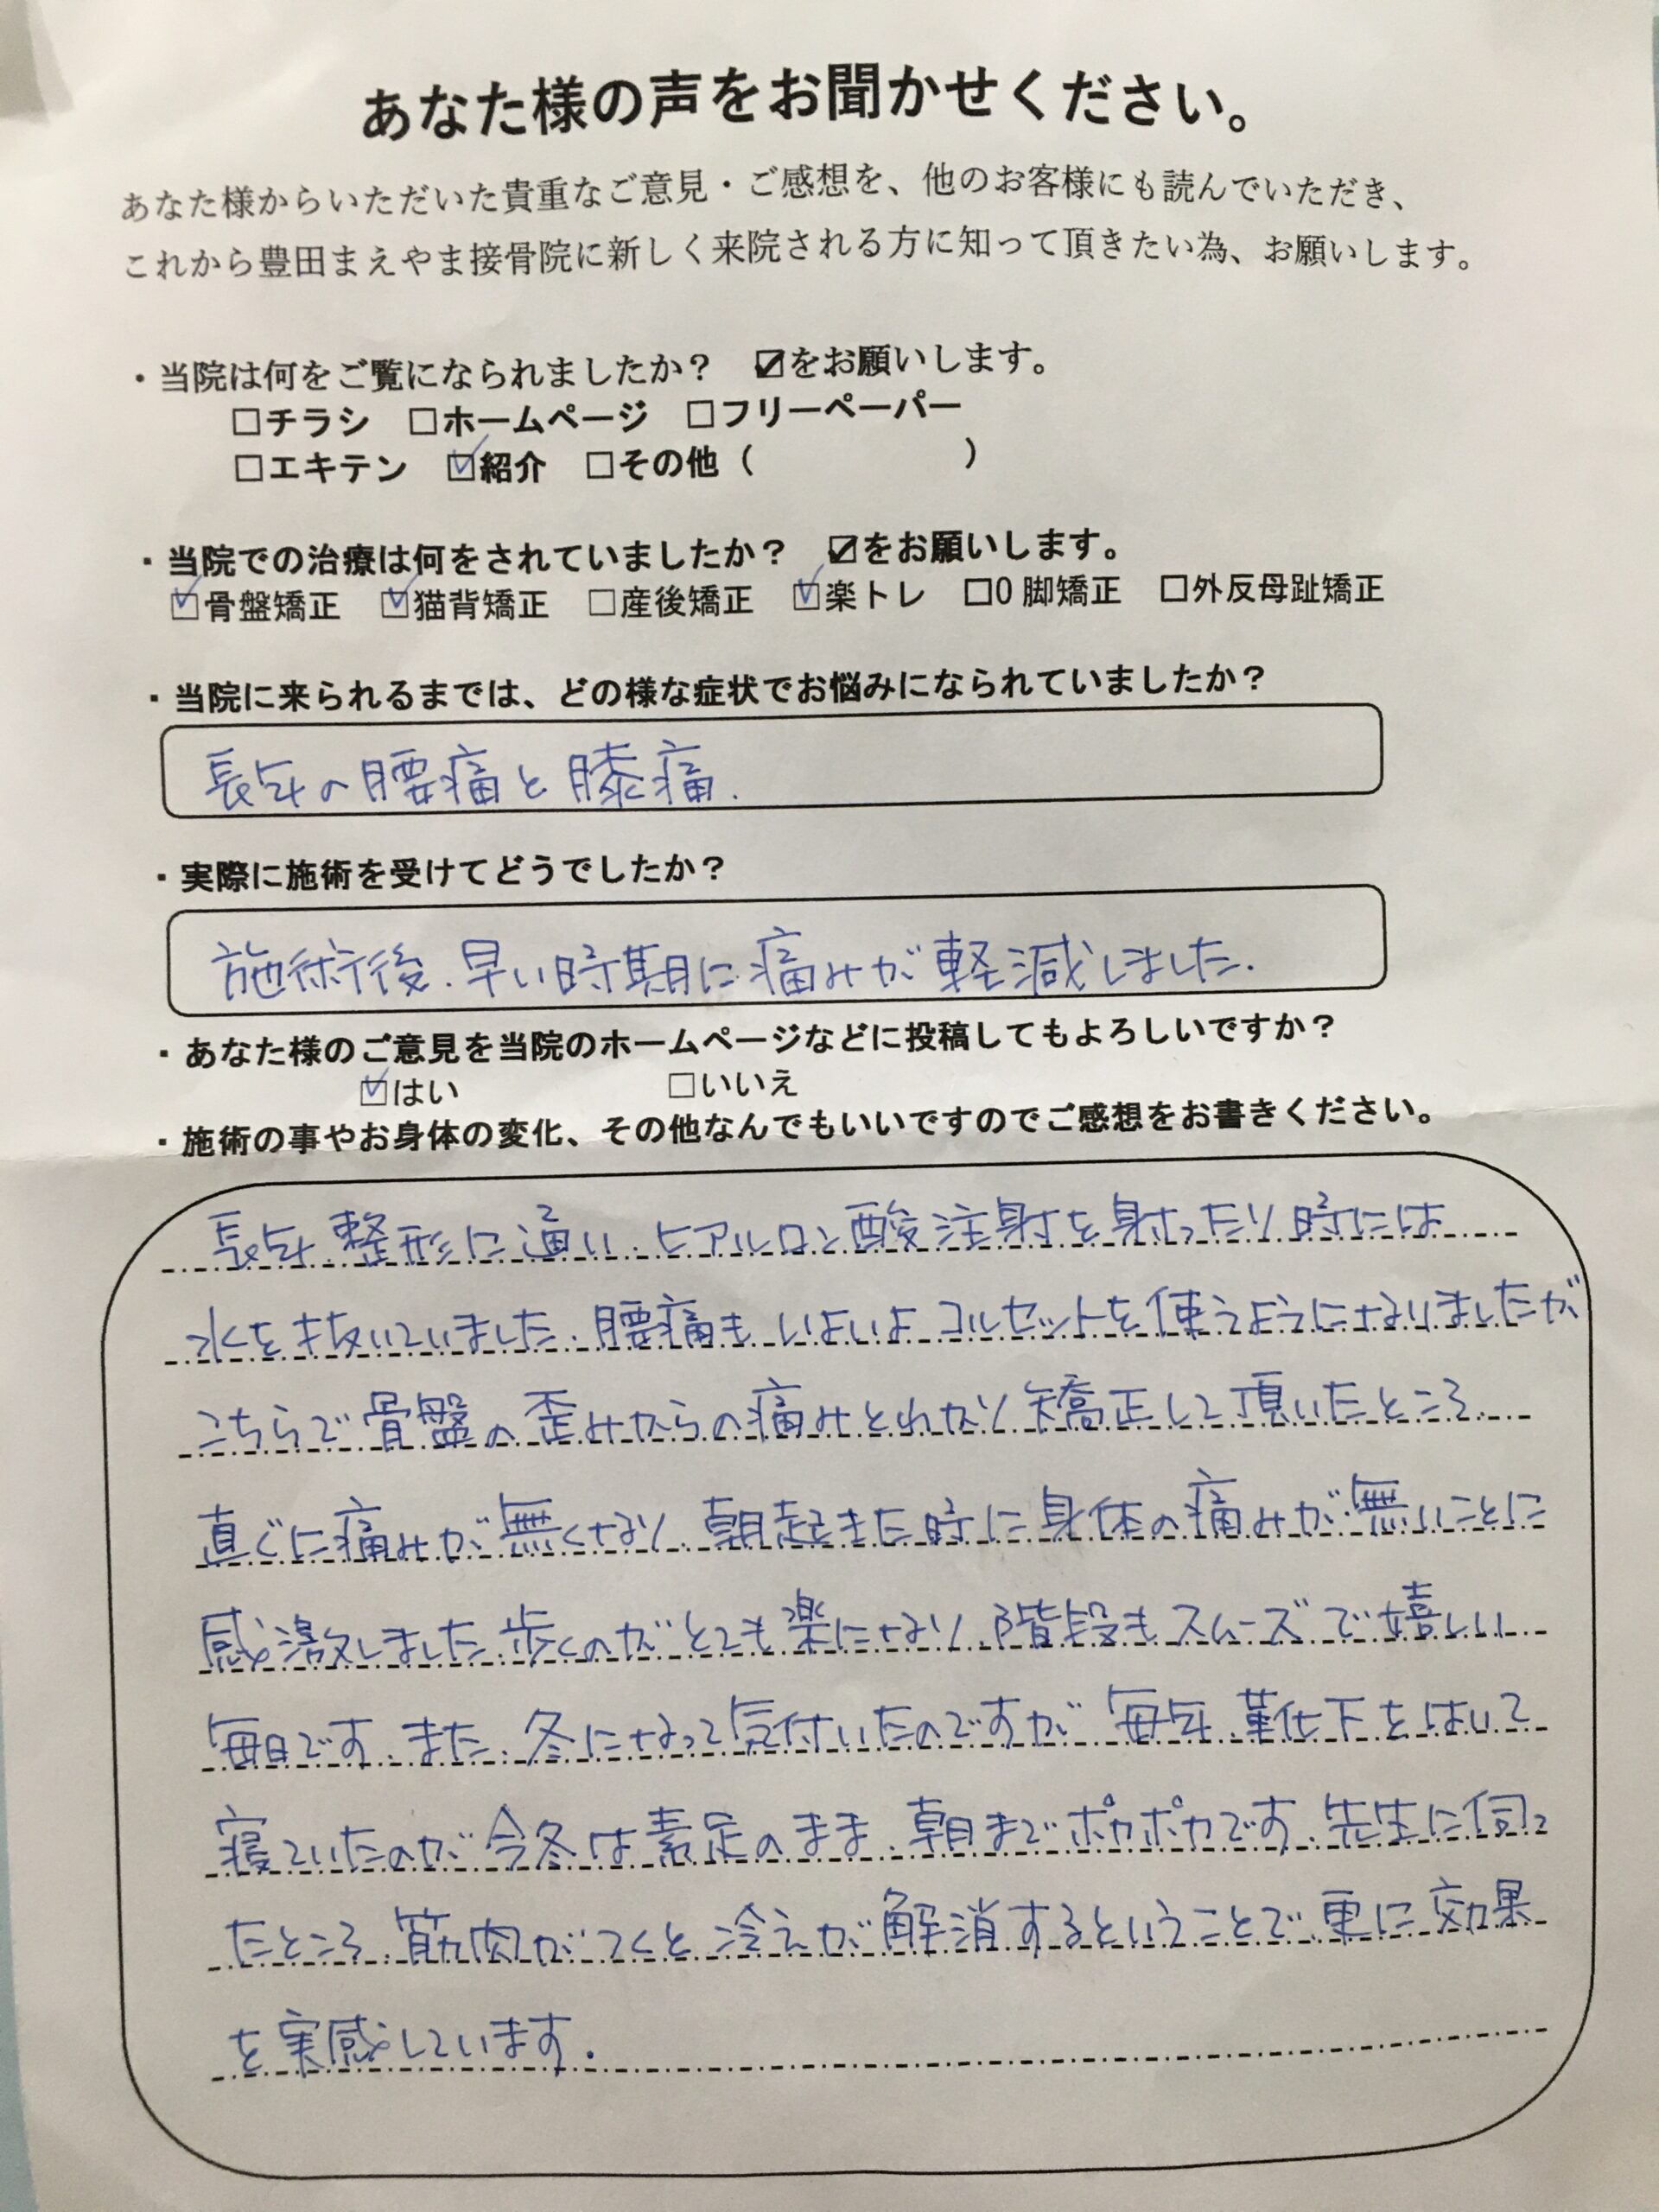 あなた様の声をお聞かせください。
あなた様からいただいた貴重なご意見・ご感想を、他のお客様にも読んでいただき、
これから豊田まえやま接骨院に新しく来院される方に知って頂きたい為、お願いします。
・当院は何をご覧になられましたか？ ☑をお願いします。
□チラシ □ホームページ □フリーペーパー
□エキテン ☑紹介 □その他（ ）
・当院での治療は何をされていましたか？ ☑をお願いします。
☑骨盤矯正 ☑猫背矯正 □産後矯正 ☑楽トレ □O脚矯正 □外反母趾矯正
・当院に来られるまでは、どの様な症状でお悩みになられていましたか？
長年の腰痛と膝痛.
・実際に施術を受けてどうでしたか？
施術後、早い時期に痛みが軽減しました.
・あなた様のご意見を当院のホームページなどに投稿してもよろしいですか？
☑はい □いいえ
・施術の事やお身体の変化、その他なんでもいいですのでご感想をお書きください。
長年、整形に通い、ヒアルロン酸注射を射ったり時には
水を抜いていました、腰痛も、いよいよコルセットを使うようになりましたが
こちらで骨盤の歪みからの痛みとわかり矯正して頂いたところ、
直ぐに痛みが無くなり、朝起きた時に身体の痛みが無いことに
感激しました、歩くのがとても楽になり、階段もスムーズで嬉しい
毎日です、また、冬になって気付いたのですが 毎年、靴下をはいて
寝ていたのが今冬は素足のまま、朝までポカポカです、先生に伺っ
たところ、筋肉がつくと冷えが解消するということで、更に効果
を実感しています.